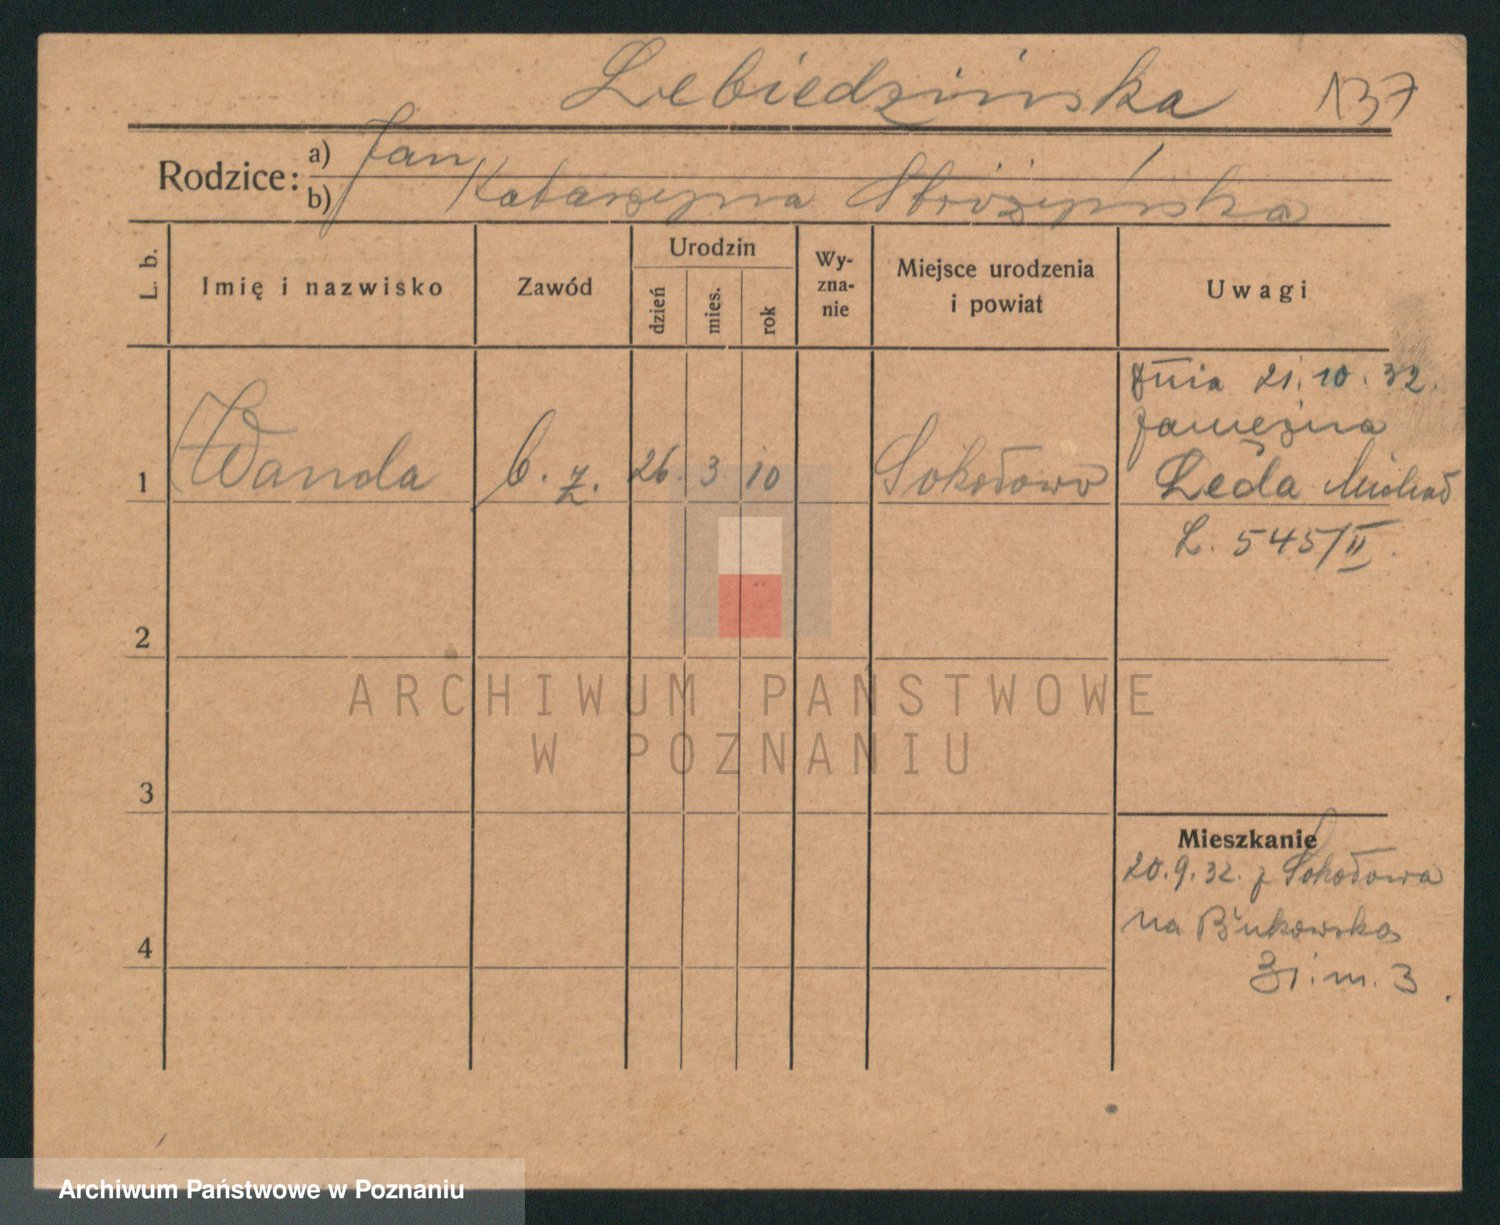 Lebiedzińska 137
Rodzice: a) Jan
b) Katarzyna Stróżyńska
L. b.
Imię i nazwisko
Zawód
Urodzin
dzień
mies.
rok
Wy-
zna-
nie
Miejsce urodzenia
i powiat
Uwagi
1 Wanda b. z. 26. 3. 10 Sokołowo
Dnia 21.10.32.
zamężna
Lęda Michał
L. 545/II.
2
3
4
Mieszkanie
20.9.32. z Sokołowa
na Bukowska
31. m. 3.
ARCHIWUM PAŃSTWOWE
W POZNANIU
Archiwum Państwowe w Poznaniu